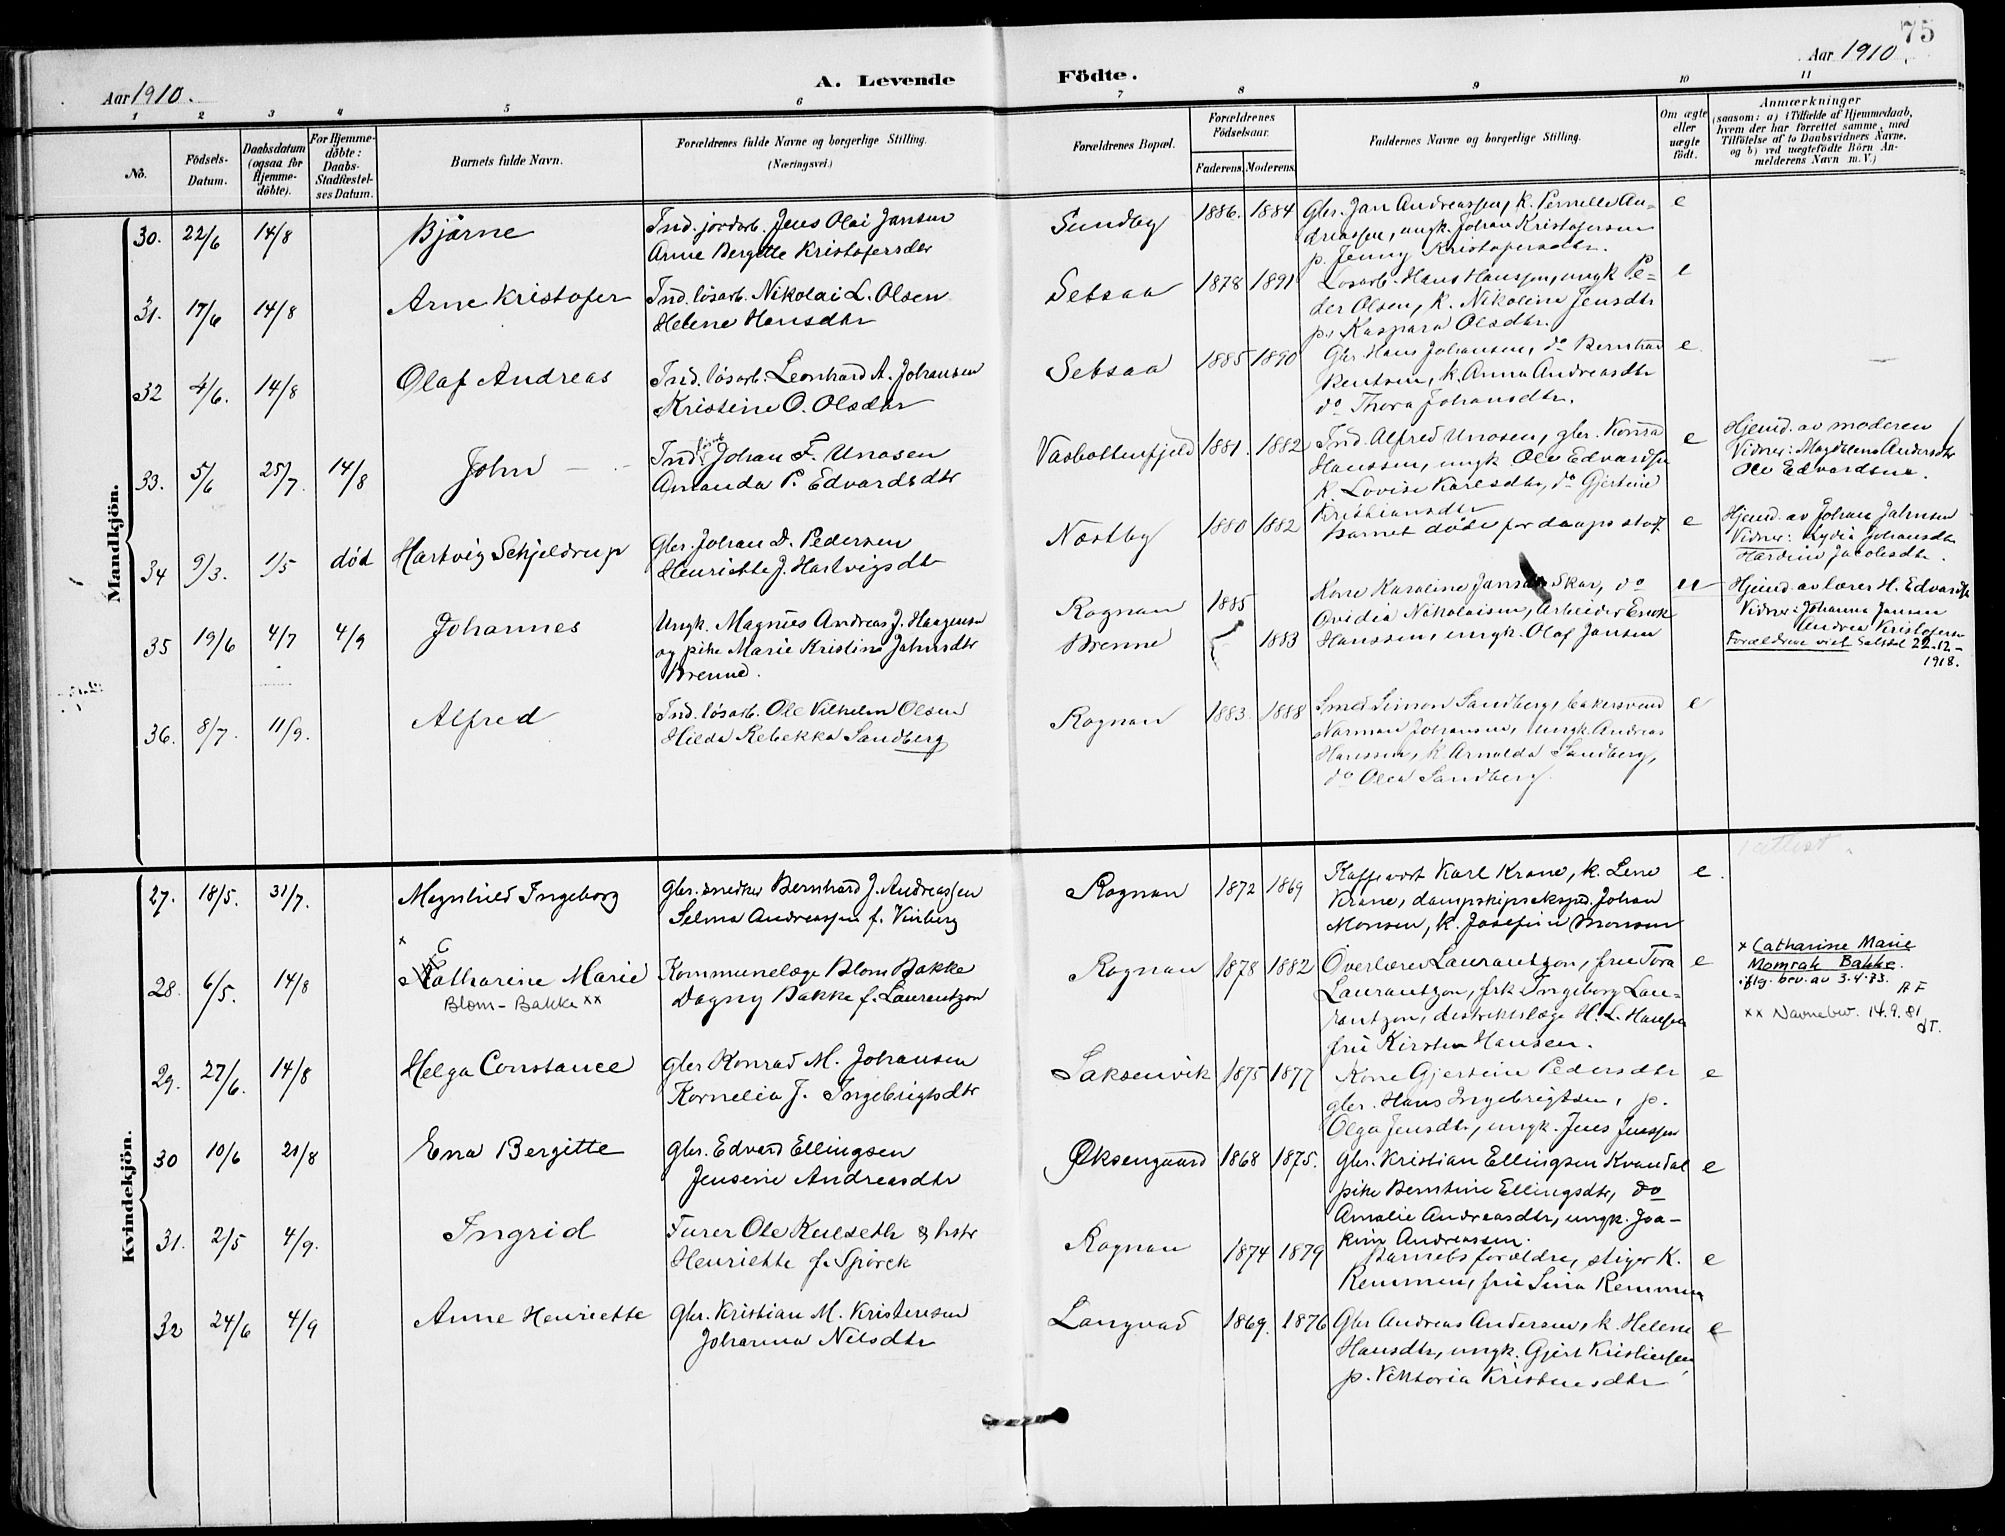 75
Aar 1910.
A. Levende
Födte.
Aar 1910.
1 2 3 4 5 6 7 8 9 10 11
No.
Födsels-
Datum.
Daabsdatum
(ogsaa for
Hjemme-
döbte).
For Hjemme-
döbte:
Daabs-
Stadfæstel-
ses Datum.
Barnets fulde Navn.
Forældrenes fulde Navne og borgerlige Stilling.
(Næringsvei.)
Forældrenes Bopæl.
Forældrenes
Födselsaar.
Faderens. Moderens.
Faddernes Navne og borgerlige Stilling.
Om ægte
eller
uægte
födt.
Anmærkninger
(saasom: a) i Tilfælde af Hjemmedaab,
hvem der har forrettet samme, med
Tilföielse af to Daabsvidners Navne.
og b) ved uægtefödte Börn An-
melderens Navn m. V.)
Mandkjön.
30. 22/6 14/8 Bjarne
Ind. jordarb. Jens Olai Jansen
Anne Bergitte Kristofersdtr
Sundby 1886. 1884
Gbr. Jan Andreassen, k. Pernelle An-
dreassen, ungk. Johan Kristofersen
p. Jenny Kristofersdtr.
e
31. 17/6 14/8 Arne Kristofer
Ind. løsarb. Nikolai L. Olsen
Helene Hansdtr
Setsaa 1878 1891
Løsarb. Hans Hanssen, ungk Pe-
der Olsen, k. Nikoline Jensdtr
p. Kaspara Olsdtr.
e
32 4/6. 14/8 Olaf Andreas
Ind. løsarb. Leonhard A. Johansen
Kristine O. Olsdtr
Setsaa 1885 1890
Gbr. Hans Johansen, do Bernhard
Bentsen, k. Anna Andreasdtr
do Thora Johansdtr.
e
33. 5/6 25/7. 14/8 John
Ind. løsarb. Johan F. Unosen
Amanda P. Edvardsdtr
Vasbottenfjeld 1881. 1882
Ind. Alfred Unosen, gbr. Konra
Hanssen, ungk Ole Edvardsen
k. Lovise Karlsdtr, do Gjertine
Kristiansdtr
e
Hjemd. av moderen
Vidner: Magdalena Andersdtr
Ole Edvardsen.
34 9/3. 1/5 død Hartvig Schjeldrup
Gbr. Johan D. Pedersen
Henriette J. Hartvigsdtr
Næstby 1880 1882
Barnet døde før daaps stadf.
e
Hjemd. av Johan Jahnsen
Vidner: Lydia Johansdtr
Hardine Jacobsdtr.
35 19/6 4/7 4/9 Johannes
Ungk. Magnus Andreas J. Haagensen
og pike Marie Kristine Jahnsdtr
Brenne.
Rognan 1885
Brenne 1883
Kone Karoline Jansdtr Skar, do
Ovidia Nikolaisen, arbeider Enok
Hanssen, ungk. Olaf Jansen
u
Hjemd. av lærer H. Edvardsen
Vidner: Johanna Jansen
Andrea Kristofersen
Forældrene viet Saltdal 22-12-
1918.
36. 8/7. 11/9. Alfred
Ind. løsarb. Ole Vilhelm Olsen
Hilda Rebekka Sandberg
Rognan 1883. 1888
Smed Simon Sandberg, bakersvend
Norman Johansen, ungk. Andreas
Hanssen, k Arnolda Sandberg,
do Olea Sandberg.
e
Kvindekjön.
27. 18/5. 31/7. Magnhild Ingeborg
Gbr. snedker Bernhard J. Andreassen
Selma Andreassen f. Vinberg
Rognan 1872 1869
Kaffevert Karl Krane, k. Lene
Krane, dampskipseksped. Johan
Monsen, k. Josefine Monsen
e.
28. 6/5. 14/8 x Catharine Marie
Blom-Bakke xx
Kommunelæge Blom Bakke
Dagny Bakke f. Laurantzon
Rognan 1878 1882
Overlærer Laurantzon, fru Tora
Laurantzon, frk Ingeborg Lau-
rantzon, distriktslæge H. L. Hansen
fru Kirsten Hansen.
e
x Catharine Marie
Momrak Bakke.
iflg. bev. av 3.4.73. AF
xx Navnebev. 14.9.81
29. 27/6. 14/8 Helga Constance
Gbr Konrad M. Johansen
Kornelia J. Ingebrigtsdtr
Saksenvik 1875 1877
Kone Gjertine Pedersdtr
gbr. Hans Ingebrigtsen, p.
Olga Jensdtr, ungk. Jens Jenssen
e
30 10/6 21/8 Ena Bergitte
Gbr. Edvard Ellingsen
Jensine Andreasdtr
Øksengaard 1868 1875.
Gbr. Kristian Ellingsen Kvandal
pike Berntine Ellingsdtr, do
Amalie Andreasdtr, ungk. Joa-
kim Andreassen.
e
31. 2/5 4/9. Ingrid
Furer Ole Kulseth & hstr
Henriette f. Spörck
Rognan 1874 1879
Barnets forældre, stiger K.
Remmen, fru Sina Remmen
e
32 24/6 4/9 Anne Henriette
Gbr. Kristian M. Kristensen
Johanna Nilsdtr
Langvad 1869. 1876
Gbr Andreas Andersen, k. Helene
Hansdtr, ungk. Gjert Kristiansen
p. Viktoria Kristensdtr
e